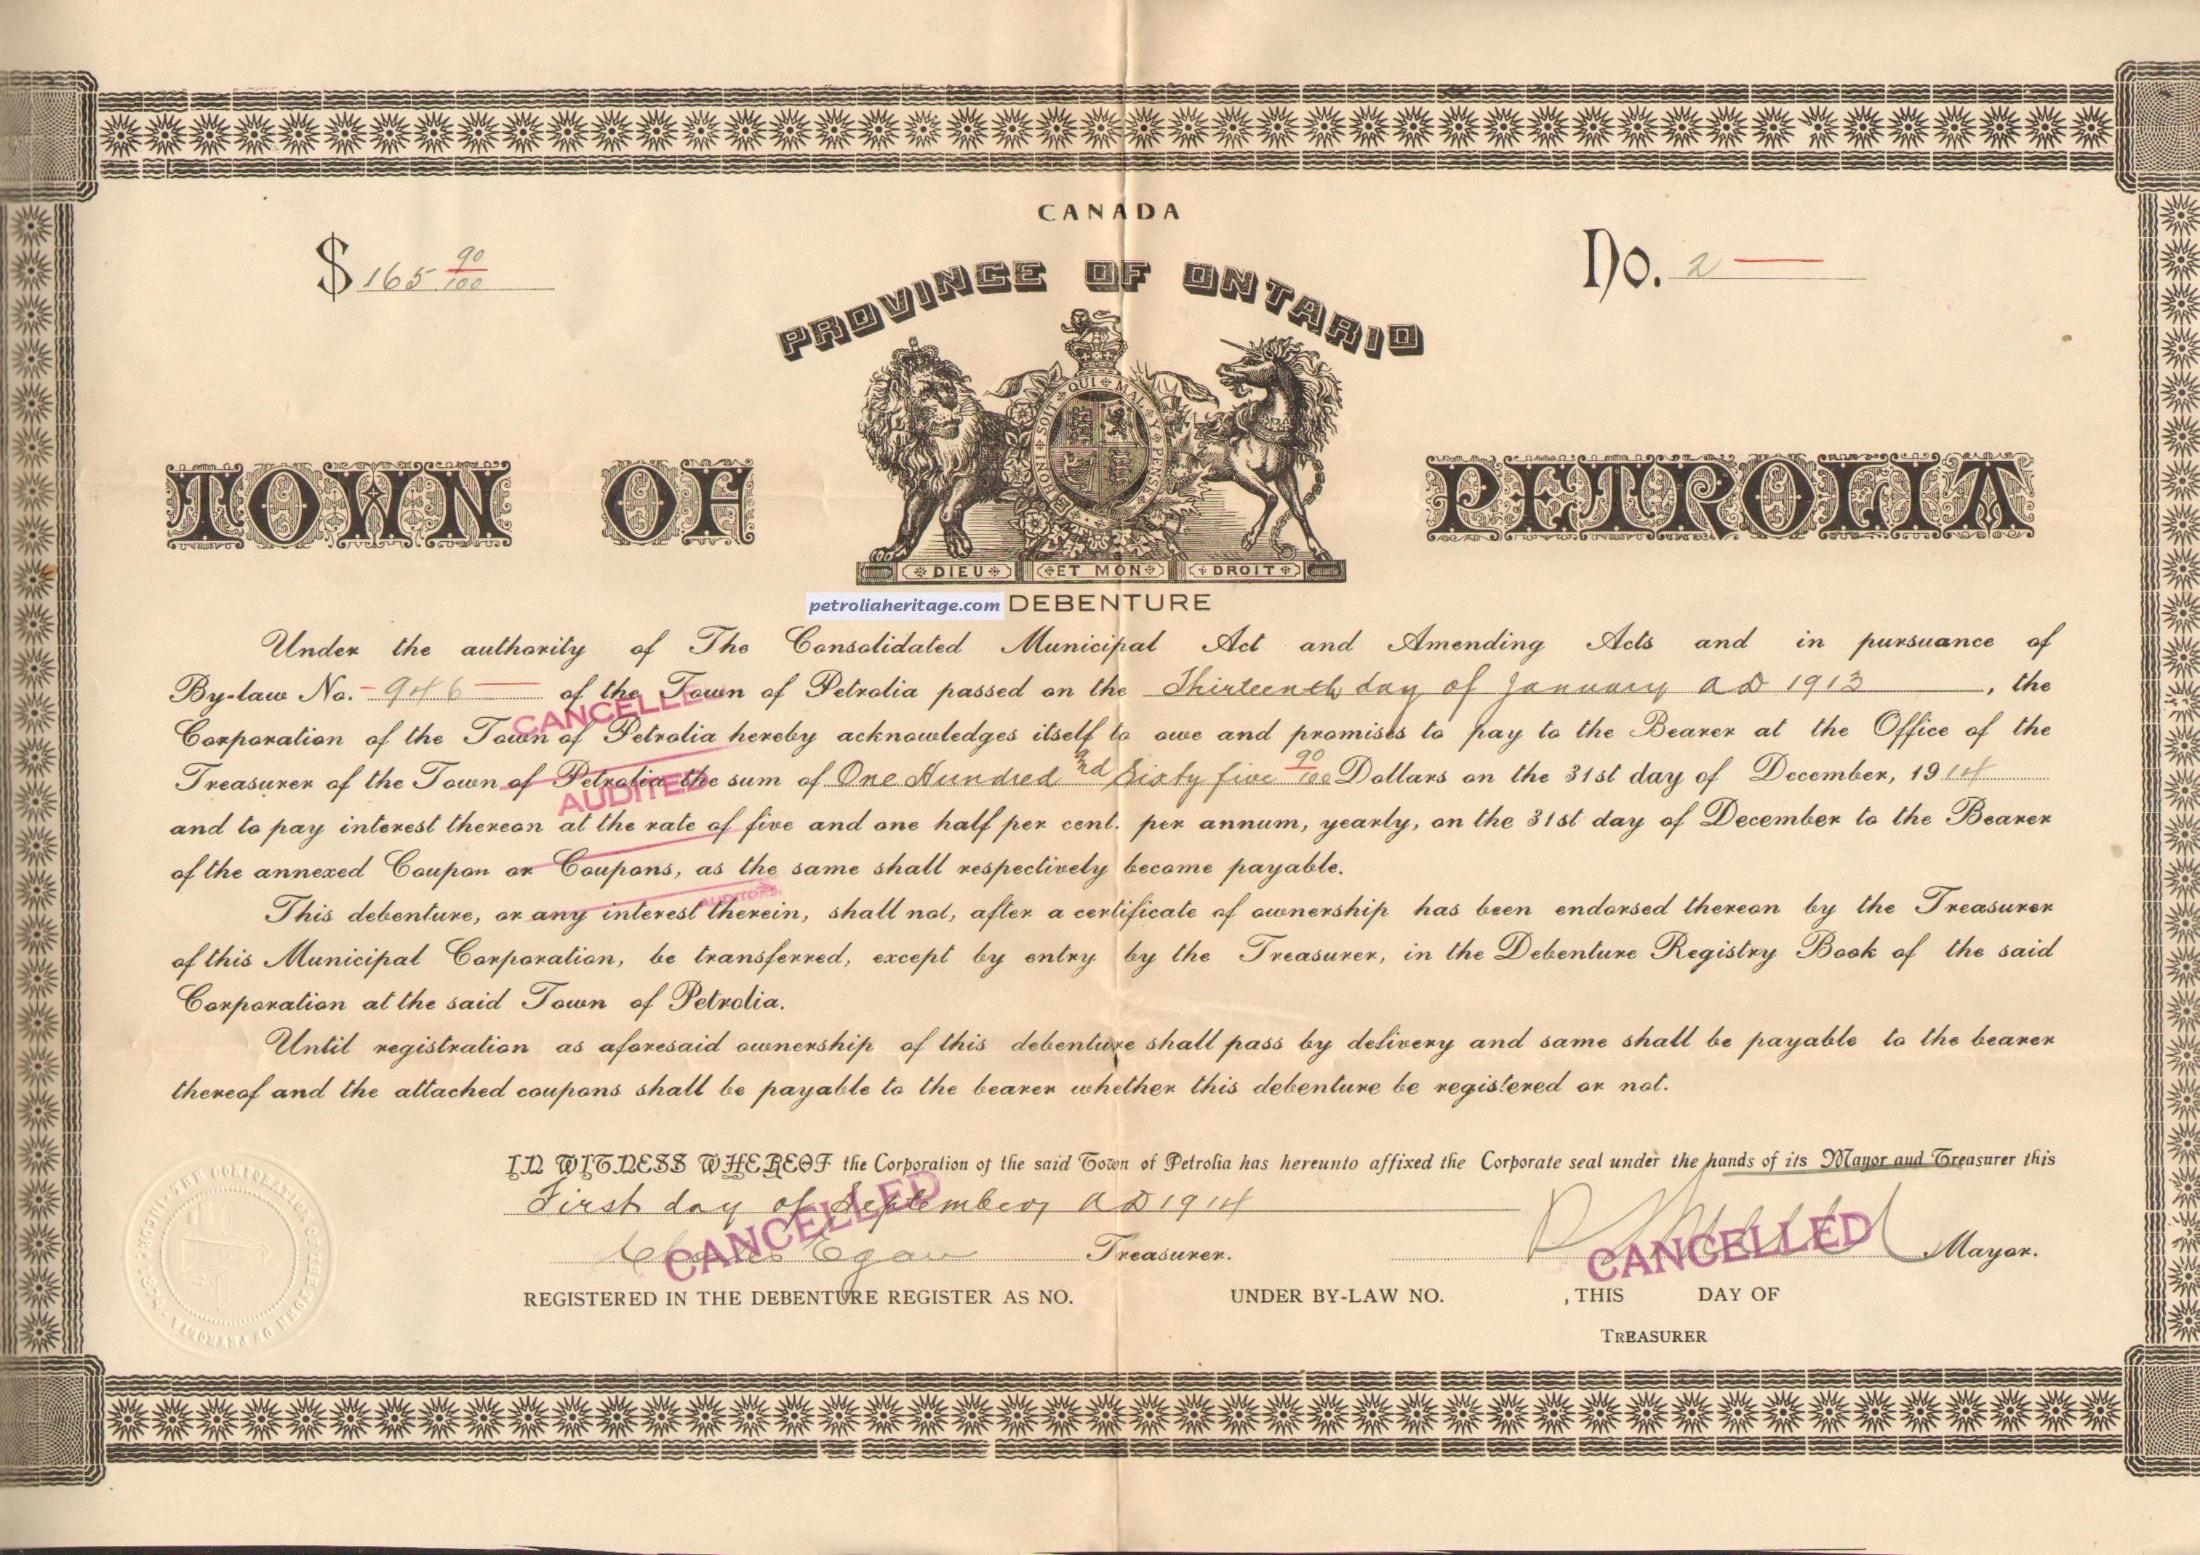 CANADA
$ 165 90/100
No. 2
PROVINCE OF ONTARIO
HONI SOIT QUI MAL Y PENSE
TOWN OF PETROLIA
DIEU ET MON DROIT
petroliaheritage.com
DEBENTURE
Under the authority of The Consolidated Municipal Act and Amending Acts and in pursuance of
By-law No. 946 of the Town of Petrolia passed on the Thirteenth day of January A D 1913, the
CANCELLED
Corporation of the Town of Petrolia hereby acknowledges itself to owe and promises to pay to the Bearer at the Office of the
Treasurer of the Town of Petrolia the sum of One Hundred and Sixty five 90/100 Dollars on the 31st day of December, 1914
AUDITED
and to pay interest thereon at the rate of five and one half per cent. per annum, yearly, on the 31st day of December to the Bearer
of the annexed Coupon or Coupons, as the same shall respectively become payable.
AUDITORS.
This debenture, or any interest therein, shall not, after a certificate of ownership has been endorsed thereon by the Treasurer
of this Municipal Corporation, be transferred, except by entry by the Treasurer, in the Debenture Registry Book of the said
Corporation at the said Town of Petrolia.
Until registration as aforesaid ownership of this debenture shall pass by delivery and same shall be payable to the bearer
thereof and the attached coupons shall be payable to the bearer whether this debenture be registered or not.
IN WITNESS WHEREOF the Corporation of the said Town of Petrolia has hereunto affixed the Corporate seal under the hands of its Mayor and Treasurer this
First day of September A D 1914
CANCELLED
CANCELLED
Charles Egan Treasurer.
Mayor.
THE CORPORATION OF THE TOWN OF PETROLIA
REGISTERED IN THE DEBENTURE REGISTER AS NO. UNDER BY-LAW NO. , THIS DAY OF
TREASURER